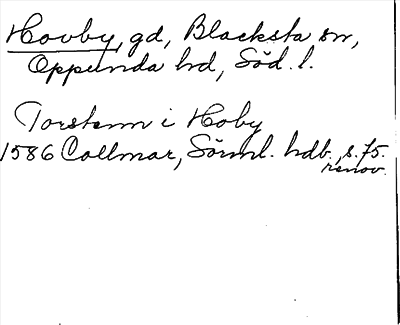 Hovby, gd, Blacksta sn,
Oppunda hd, Söd. l.
Torstenn i Hoby
1586 Collmar, Sörml. hdb., s. 75.
renov.